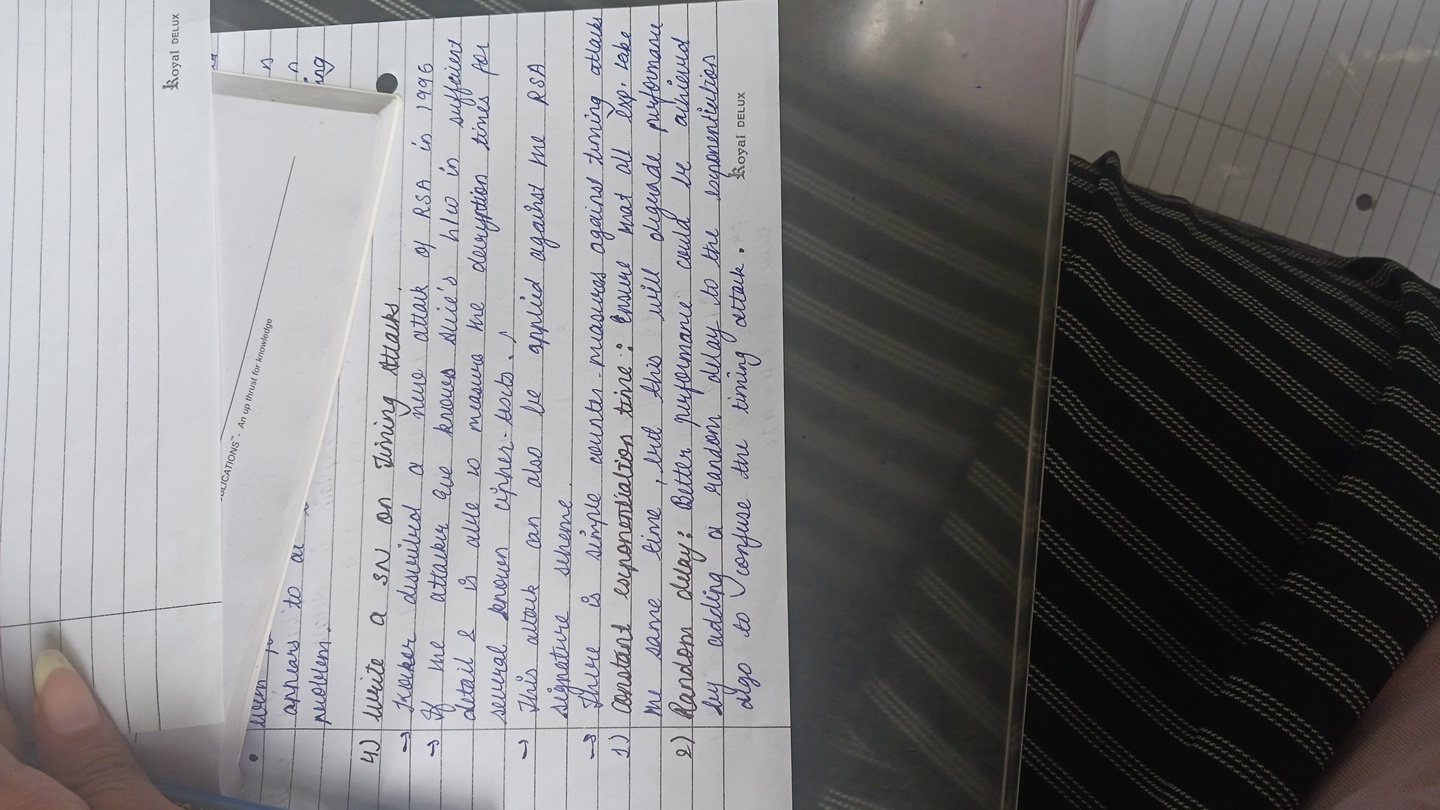 Royal DELUX
BLICATIONS™. An up thrust for knowledge
appears to
problem.
4.) Write a SN on Timing Attacks.
→ described a new attack of RSA in 1996
→ If the attacker Eve knows Alice's h/w in sufficient
detail & is able to measure the decryption times for
several known cipher-texts.
→ This attack can also be applied against the RSA
signature scheme.
→ There is simple counter-measures against timing attacks
1) Constant exponentiation time: Ensure that all exp. take
the same time, but this will degrade performance
2) Random delay: Better performance could be achieved
by adding a random delay to the exponentiation
algo to confuse the timing attack.
Royal DELUX